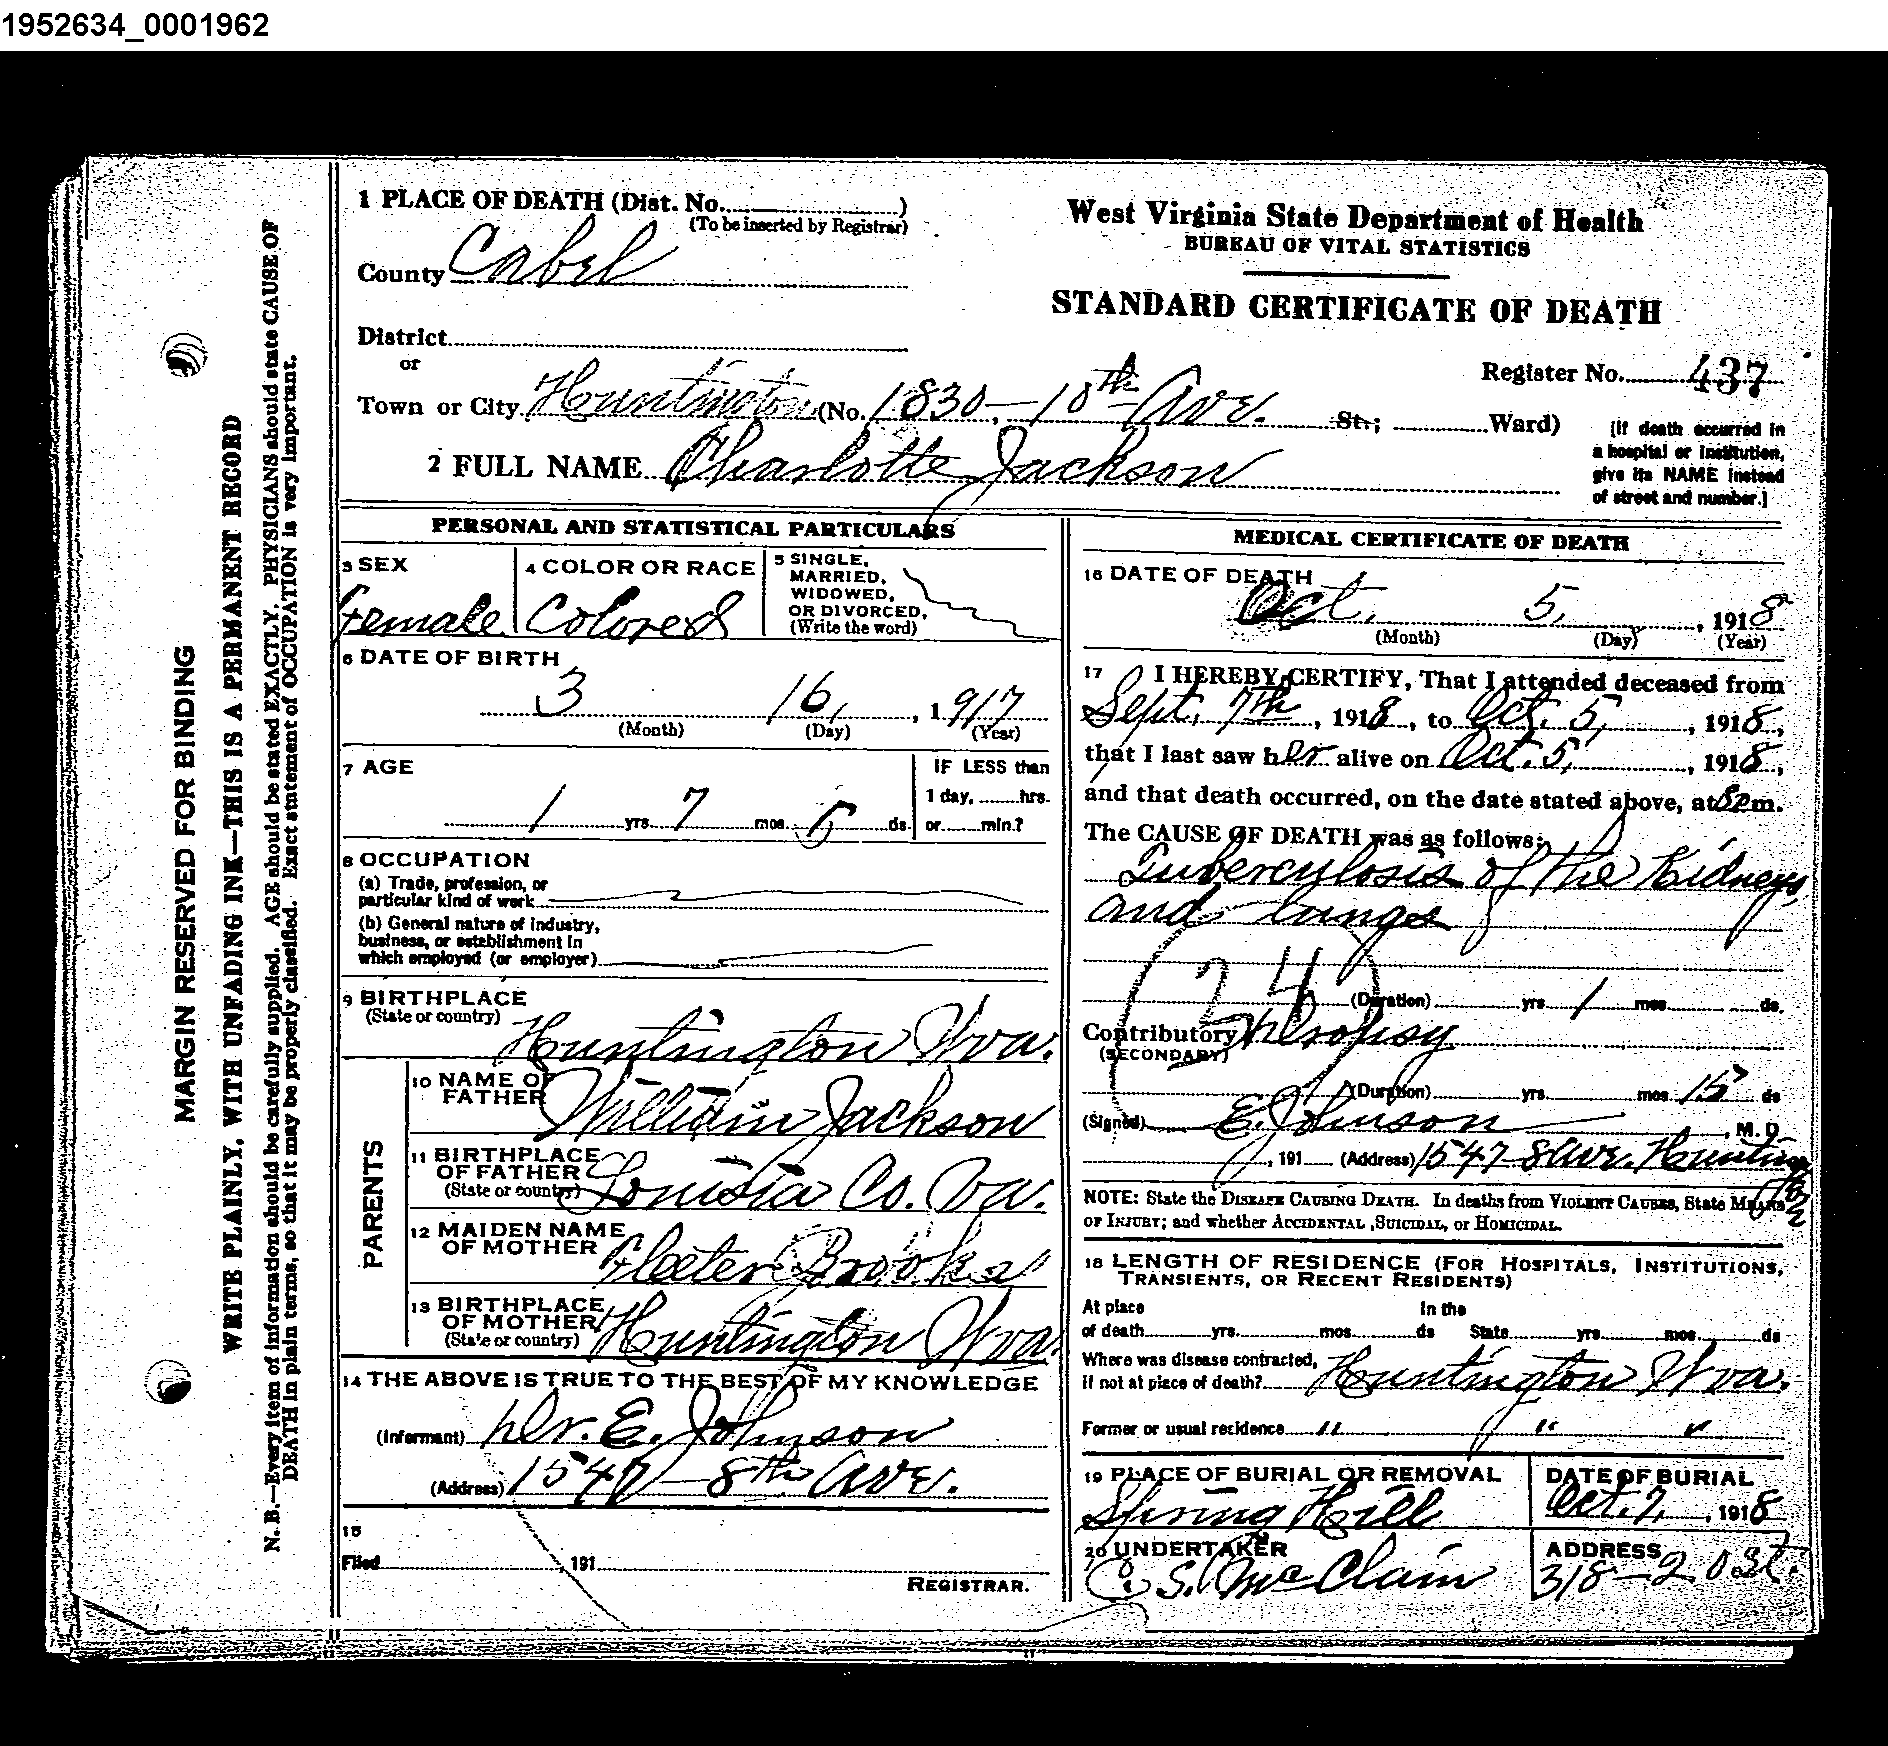 1952634_0001962
MARGIN RESERVED FOR BINDING
WRITE PLAINLY, WITH UNFADING INK—THIS IS A PERMANENT RECORD
N. B.—Every item of information should be carefully supplied. AGE should be stated EXACTLY. PHYSICIANS should state CAUSE OF
DEATH in plain terms, so that it may be properly classified. Exact statement of OCCUPATION is very important.
1 PLACE OF DEATH (Dist. No. )
(To be inserted by Registrar)
County Cabel
District
or
Town or City Huntington (No. 1830 - 10th Ave. St.; Ward)
2 FULL NAME Charlotte Jackson
West Virginia State Department of Health
BUREAU OF VITAL STATISTICS
STANDARD CERTIFICATE OF DEATH
Register No. 437
(If death occurred in
a hospital or institution,
give its NAME instead
of street and number.)
PERSONAL AND STATISTICAL PARTICULARS
3 SEX
Female
4 COLOR OR RACE
Colored
5 SINGLE,
MARRIED,
WIDOWED,
OR DIVORCED,
(Write the word)
6 DATE OF BIRTH
3 16, , 1917
(Month) (Day) (Year)
7 AGE
1 yrs 7 mos 5 ds
IF LESS than
1 day, hrs.
or min.?
8 OCCUPATION
(a) Trade, profession, or
particular kind of work
(b) General nature of industry,
business, or establishment in
which employed (or employer)
9 BIRTHPLACE
(State or country)
Huntington Wva.
PARENTS
10 NAME OF
FATHER
William Jackson
11 BIRTHPLACE
OF FATHER
(State or country)
Louisia Co. Va.
12 MAIDEN NAME
OF MOTHER
Brooks
13 BIRTHPLACE
OF MOTHER
(State or country)
Huntington Wva.
14 THE ABOVE IS TRUE TO THE BEST OF MY KNOWLEDGE
(Informant) Dr. E. Johnson
(Address) 1547 - 8th Ave.
15
Filed , 191
REGISTRAR.
MEDICAL CERTIFICATE OF DEATH
16 DATE OF DEATH
Oct. 5, , 1918
(Month) (Day) (Year)
17 I HEREBY CERTIFY, That I attended deceased from
Sept. 7th , 1918, to Oct. 5, , 1918,
that I last saw her alive on Oct. 5, , 1918,
and that death occurred, on the date stated above, at m.
The CAUSE OF DEATH was as follows:
Tuberculosis of the Kidneys,
and lungs
24
(Duration) yrs 1 mos ds.
Contributory Dropsy
(SECONDARY)
(Duration) yrs mos 15 ds
(Signed) E. Johnson , M. D.
, 191 (Address) 1547 8 Ave. Huntington
NOTE: State the DISEASE CAUSING DEATH. In deaths from VIOLENT CAUSES, State MEANS
OF INJURY; and whether ACCIDENTAL, SUICIDAL, or HOMICIDAL.
18 LENGTH OF RESIDENCE (FOR HOSPITALS, INSTITUTIONS,
TRANSIENTS, OR RECENT RESIDENTS)
At place In the
of death yrs. mos. ds State yrs. mos. ds
Where was disease contracted,
if not at place of death? Huntington Wva.
Former or usual recidence " " "
19 PLACE OF BURIAL OR REMOVAL
Spring Hill
DATE OF BURIAL
Oct. 7, , 1918
20 UNDERTAKER
C. S. McClain
ADDRESS
318 - 20 St.